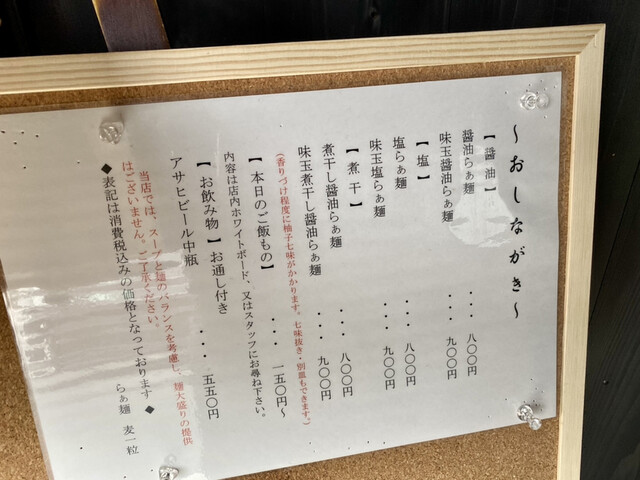 ～おしながき～
【醤油】
醤油らぁ麺 ・・・ 八〇〇円
味玉醤油らぁ麺 ・・・ 九〇〇円
【塩】
塩らぁ麺 ・・・ 八〇〇円
味玉塩らぁ麺 ・・・ 九〇〇円
【煮干】
煮干し醤油らぁ麺 ・・・ 八〇〇円
味玉煮干し醤油らぁ麺 ・・・ 九〇〇円
(香りづけ程度に柚子七味がかかります。七味抜き・別皿もできます。)
【本日のご飯もの】 ・・・ 一五〇円～
内容は店内ホワイトボード、又はスタッフにお尋ね下さい。
【お飲み物】お通し付き
アサヒビール中瓶 ・・・ 五五〇円
当店では、スープと麺のバランスを考慮し、麺大盛りの提供
はございません。ご了承ください。
◆表記は消費税込みの価格となっております◆
らぁ麺 麦一粒